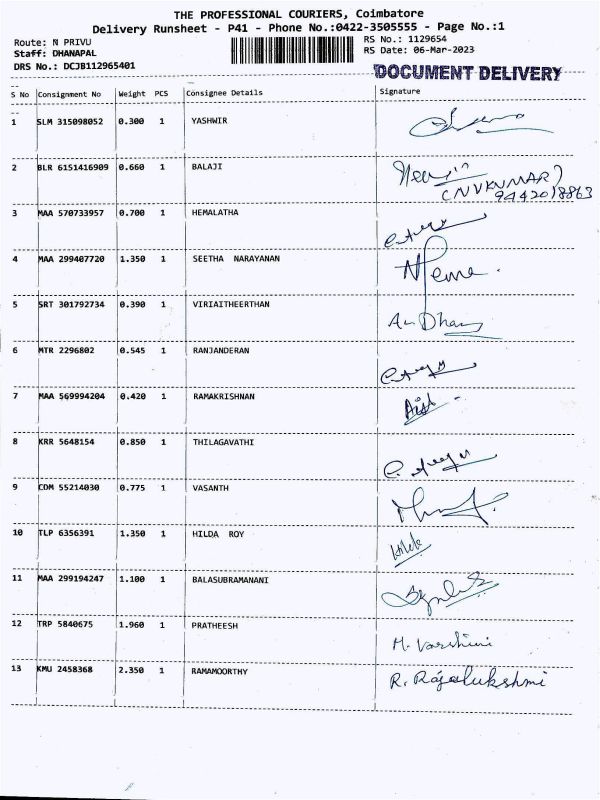 THE PROFESSIONAL COURIERS, Coimbatore
Delivery Runsheet - P41 - Phone No.:0422-3505555 - Page No.:1
Route: N PRIVU
Staff: DHANAPAL
DRS No.: DCJB112965401
RS No.: 1129654
RS Date: 06-Mar-2023
DOCUMENT DELIVERY
S No Consignment No Weight PCS Consignee Details Signature
1 SLM 315098052 0.300 1 YASHWIR
2 BLR 6151416909 0.660 1 BALAJI
(NVKUMAR)
9442018863
3 MAA 570733957 0.700 1 HEMALATHA
4 MAA 299407720 1.350 1 SEETHA NARAYANAN
5 SRT 301792734 0.390 1 VIRIAITHEERTHAN
6 MTR 2296802 0.545 1 RANJANDERAN
7 MAA 569994204 0.420 1 RAMAKRISHNAN
8 KRR 5648154 0.850 1 THILAGAVATHI
9 CDM 55214030 0.775 1 VASANTH
10 TLP 6356391 1.350 1 HILDA ROY Hilda
11 MAA 299194247 1.100 1 BALASUBRAMANANI
12 TRP 5840675 1.960 1 PRATHEESH M. Varshini
13 KMU 2458368 2.350 1 RAMAMOORTHY R. Rajalukshmi